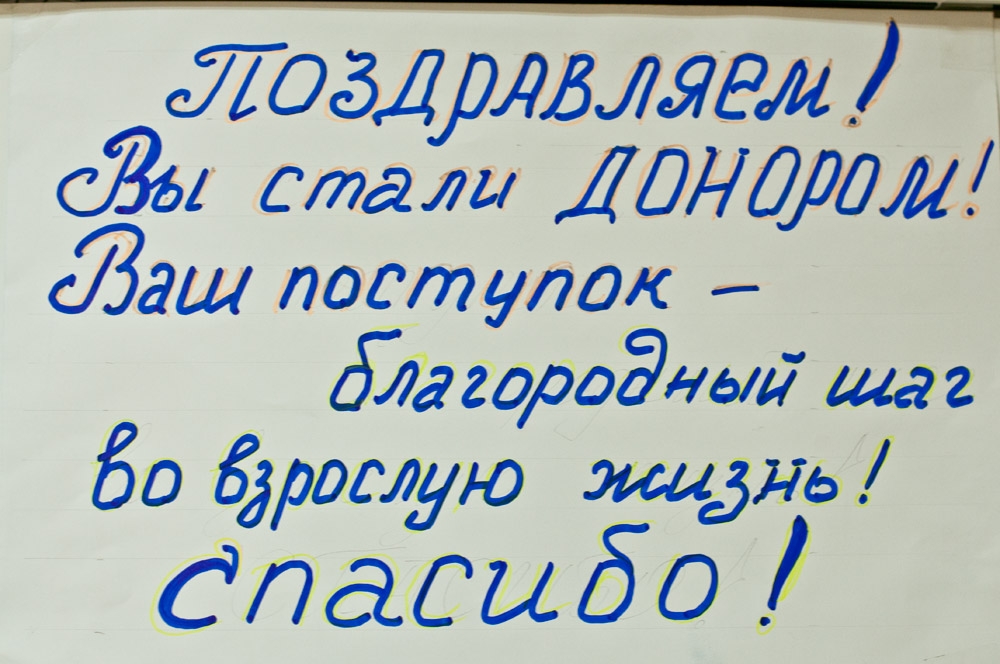 Поздравляем!
Вы стали ДОНОРОМ!
Ваш поступок –
благородный шаг
во взрослую жизнь!
спасибо!